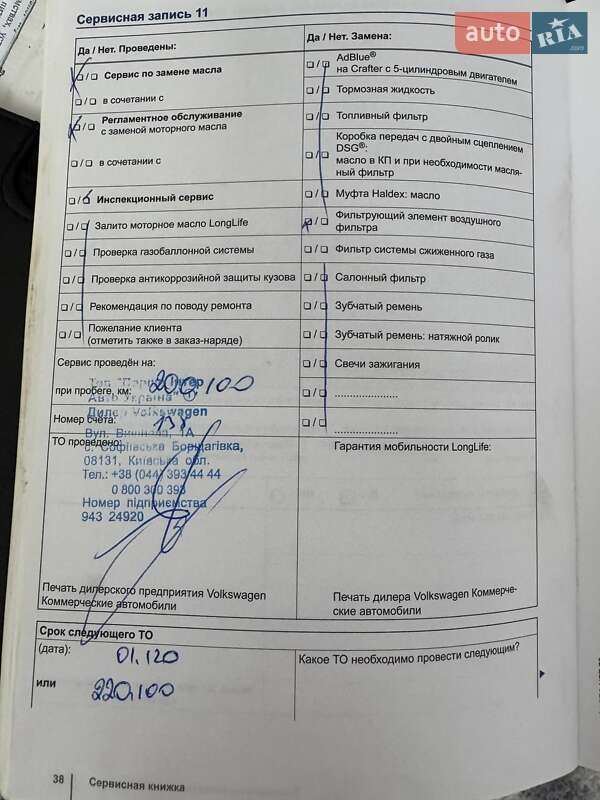 auto RIA.com
Сервисная запись 11
Да / Нет. Проведены:
Да / Нет. Замена:
/ Сервис по замене масла
/ в сочетании с
/ Регламентное обслуживание
с заменой моторного масла
/ в сочетании с
/ Инспекционный сервис
/ Залито моторное масло LongLife
/ Проверка газобаллонной системы
/ Проверка антикоррозийной защиты кузова
/ Рекомендация по поводу ремонта
/ Пожелание клиента
(отметить также в заказ-наряде)
/ AdBlue®
на Crafter с 5-цилиндровым двигателем
/ Тормозная жидкость
/ Топливный фильтр
/ Коробка передач с двойным сцеплением
DSG®:
масло в КП и при необходимости масля-
ный фильтр
/ Муфта Haldex: масло
/ Фильтрующий элемент воздушного
фильтра
/ Фильтр системы сжиженного газа
/ Салонный фильтр
/ Зубчатый ремень
/ Зубчатый ремень: натяжной ролик
/ Свечи зажигания
/ ......................
/ ......................
Сервис проведён на:
при пробеге, км: 200,100
Номер счёта:
ТО проведено:
Авто Україна"
Дилер Volkswagen
Вул. 1А
с. Софіївська Борщагівка,
08131, Київська обл.
Тел.: +38 (044) 393 44 44
0 800 300 393
Номер підприємства
943 24920
Гарантия мобильности LongLife:
Печать дилерского предприятия Volkswagen
Коммерческие автомобили
Печать дилера Volkswagen Коммерче-
ские автомобили
Срок следующего ТО
(дата): 01.120
или 220,100
Какое ТО необходимо провести следующим?
38 Сервисная книжка